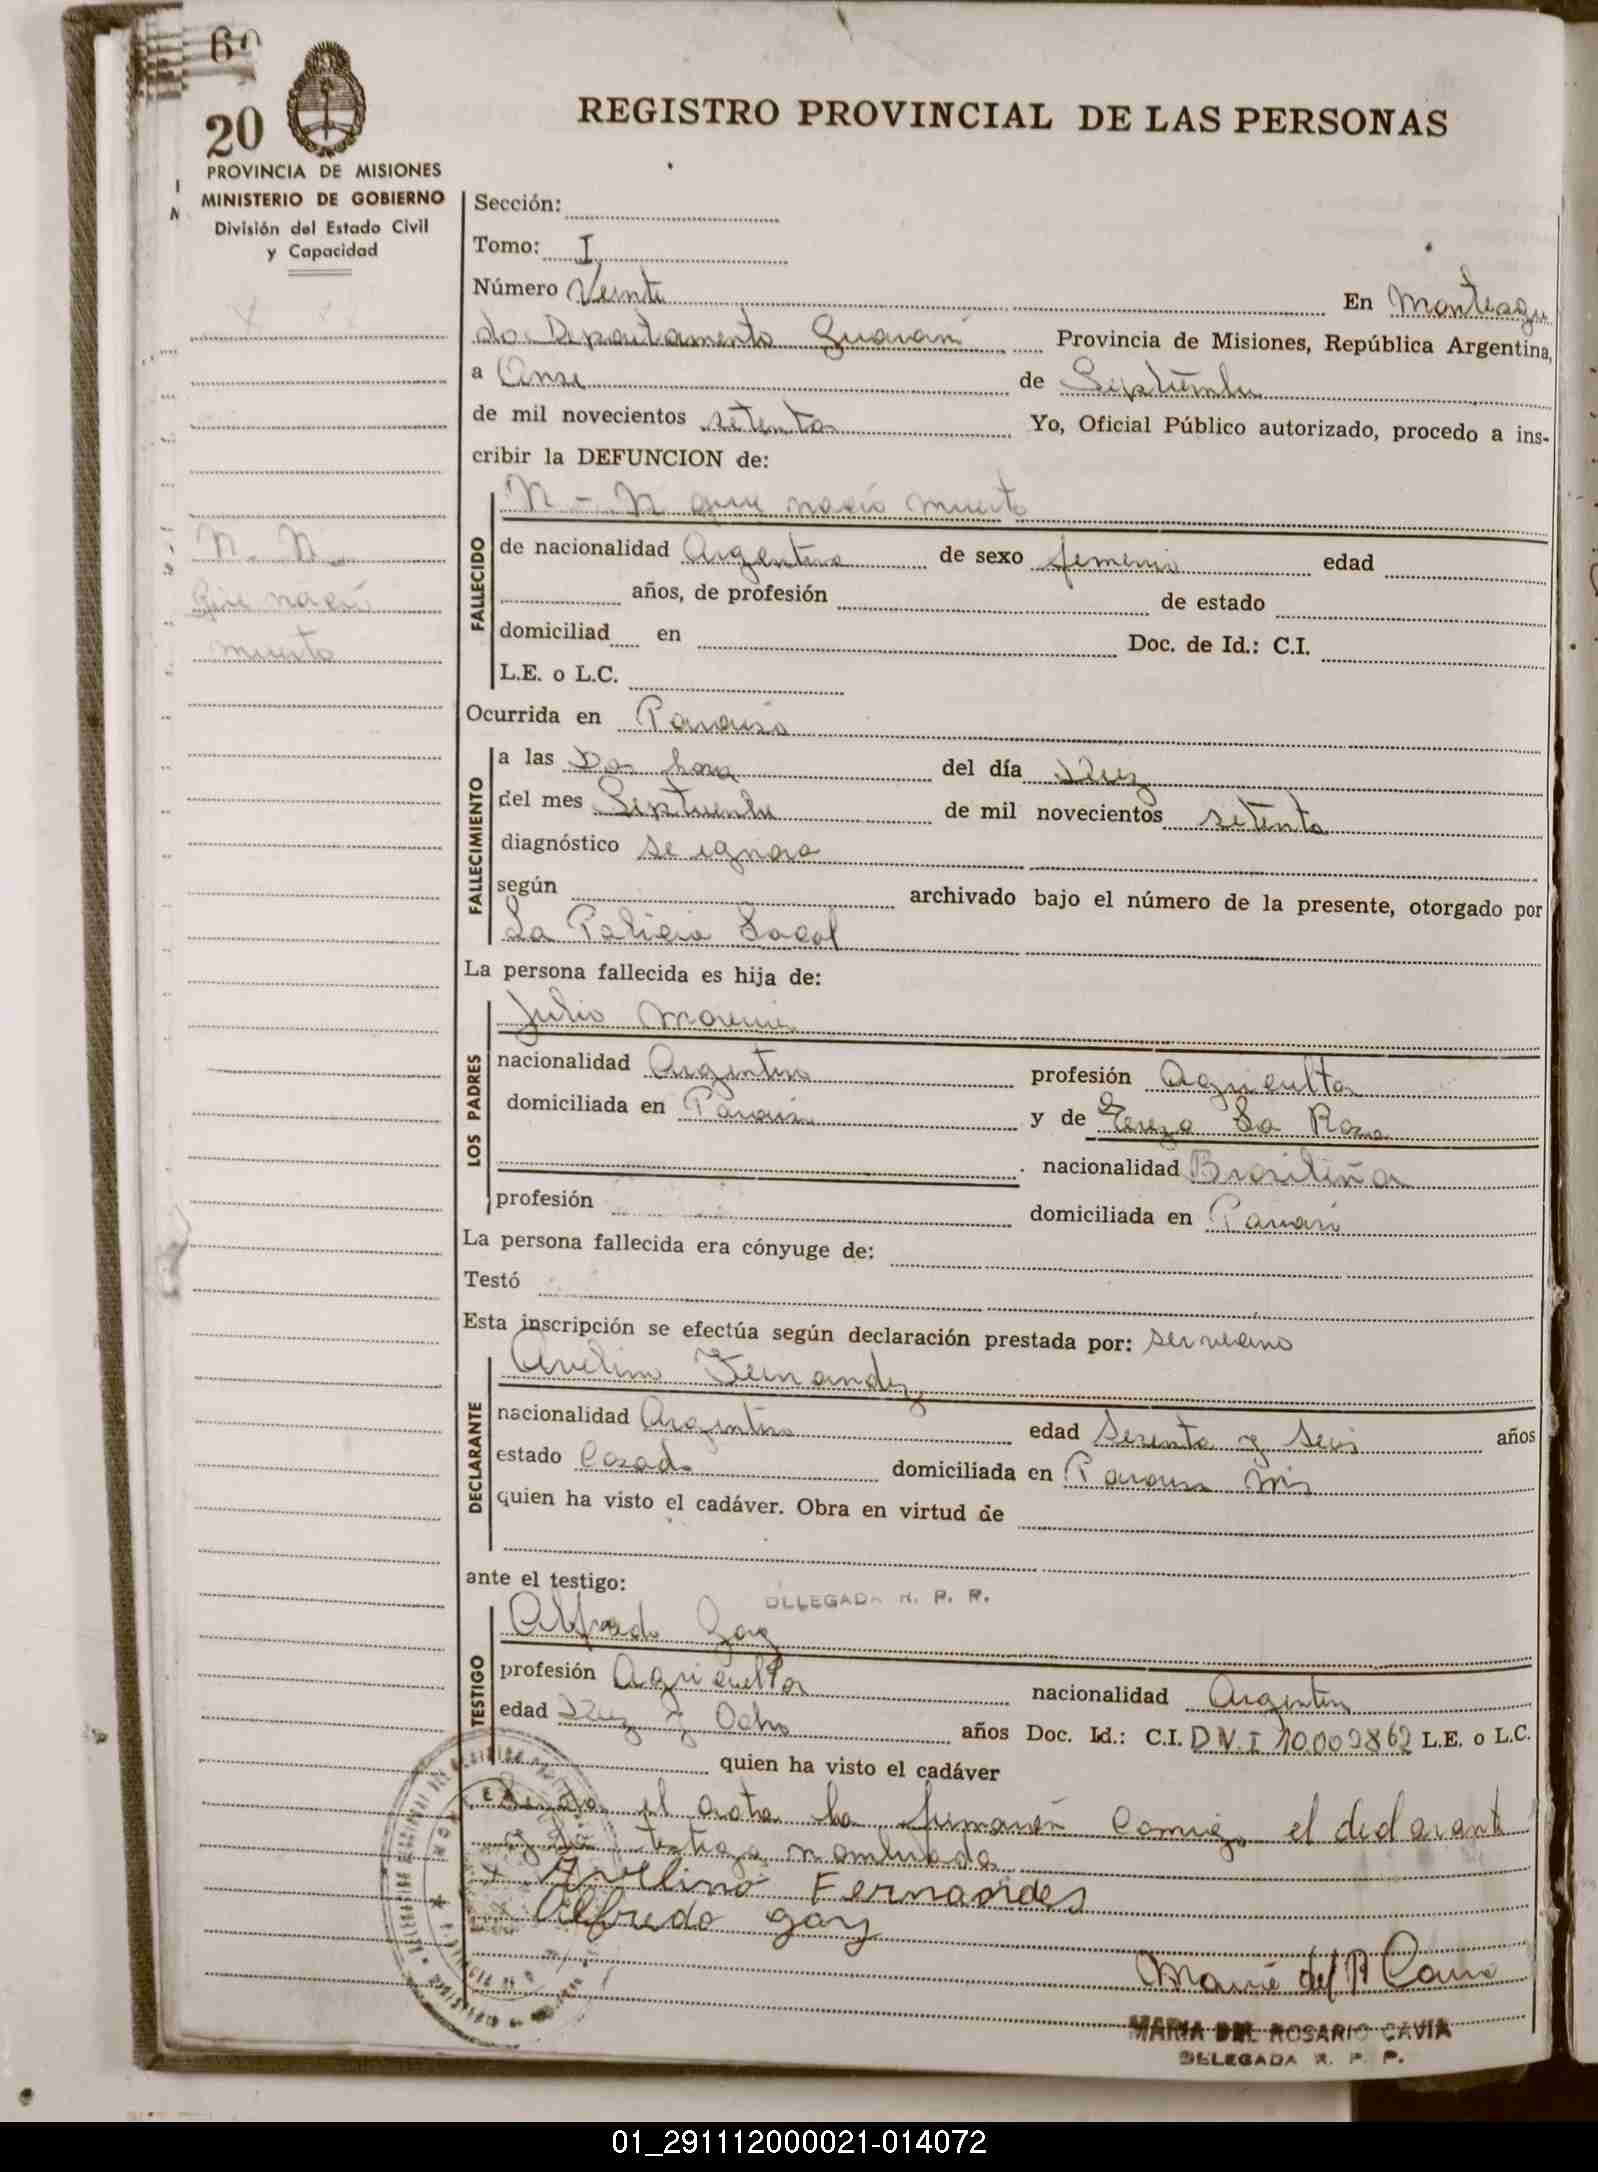 20
PROVINCIA DE MISIONES
MINISTERIO DE GOBIERNO
División del Estado Civil
y Capacidad
REGISTRO PROVINCIAL DE LAS PERSONAS
Sección:
Tomo: I
Número Veinte En Monteagu
do Departamento Guarani Provincia de Misiones, República Argentina,
a Onse de Septiembre
de mil novecientos setenta Yo, Oficial Público autorizado, procedo a ins-
cribir la DEFUNCION de:
N - N que nacio muerto
N. N.
que nacio
muerto
FALLECIDO
de nacionalidad Argentina de sexo femenino edad
años, de profesión de estado
domiciliad en Doc. de Id.: C.I.
L.E. o L.C.
Ocurrida en Panambi
FALLECIMIENTO
a las Dos hora del día Diez
del mes Septiembre de mil novecientos setenta
diagnóstico se ignora
según archivado bajo el número de la presente, otorgado por
La Policia Local
La persona fallecida es hija de:
LOS PADRES
Julio
nacionalidad Argentino profesión Agricultor
domiciliada en y de Tereza Da Rosa
nacionalidad Brasiliña
profesión domiciliada en
La persona fallecida era cónyuge de:
Testó
Esta inscripción se efectúa según declaración prestada por:
DECLARANTE
Avelino Fernandez
nacionalidad Argentino edad Sesenta y Seis años
estado Casado domiciliada en Mis
quien ha visto el cadáver. Obra en virtud de
ante el testigo:
DELEGADA R. P. P.
TESTIGO
Alfredo Gay
profesión Agricultor nacionalidad Argentino
edad Diez y Ocho años Doc. Id.: C.I. D N.I 10.002862 L.E. o L.C.
quien ha visto el cadáver
el acta la firmarón Comigo el declarante
y testigo nombrado
Avelino Fernandes
Alfredo gay
Maria del R Cavia
MARIA DEL ROSARIO CAVIA
DELEGADA R. P. P.
01_291112000021-014072